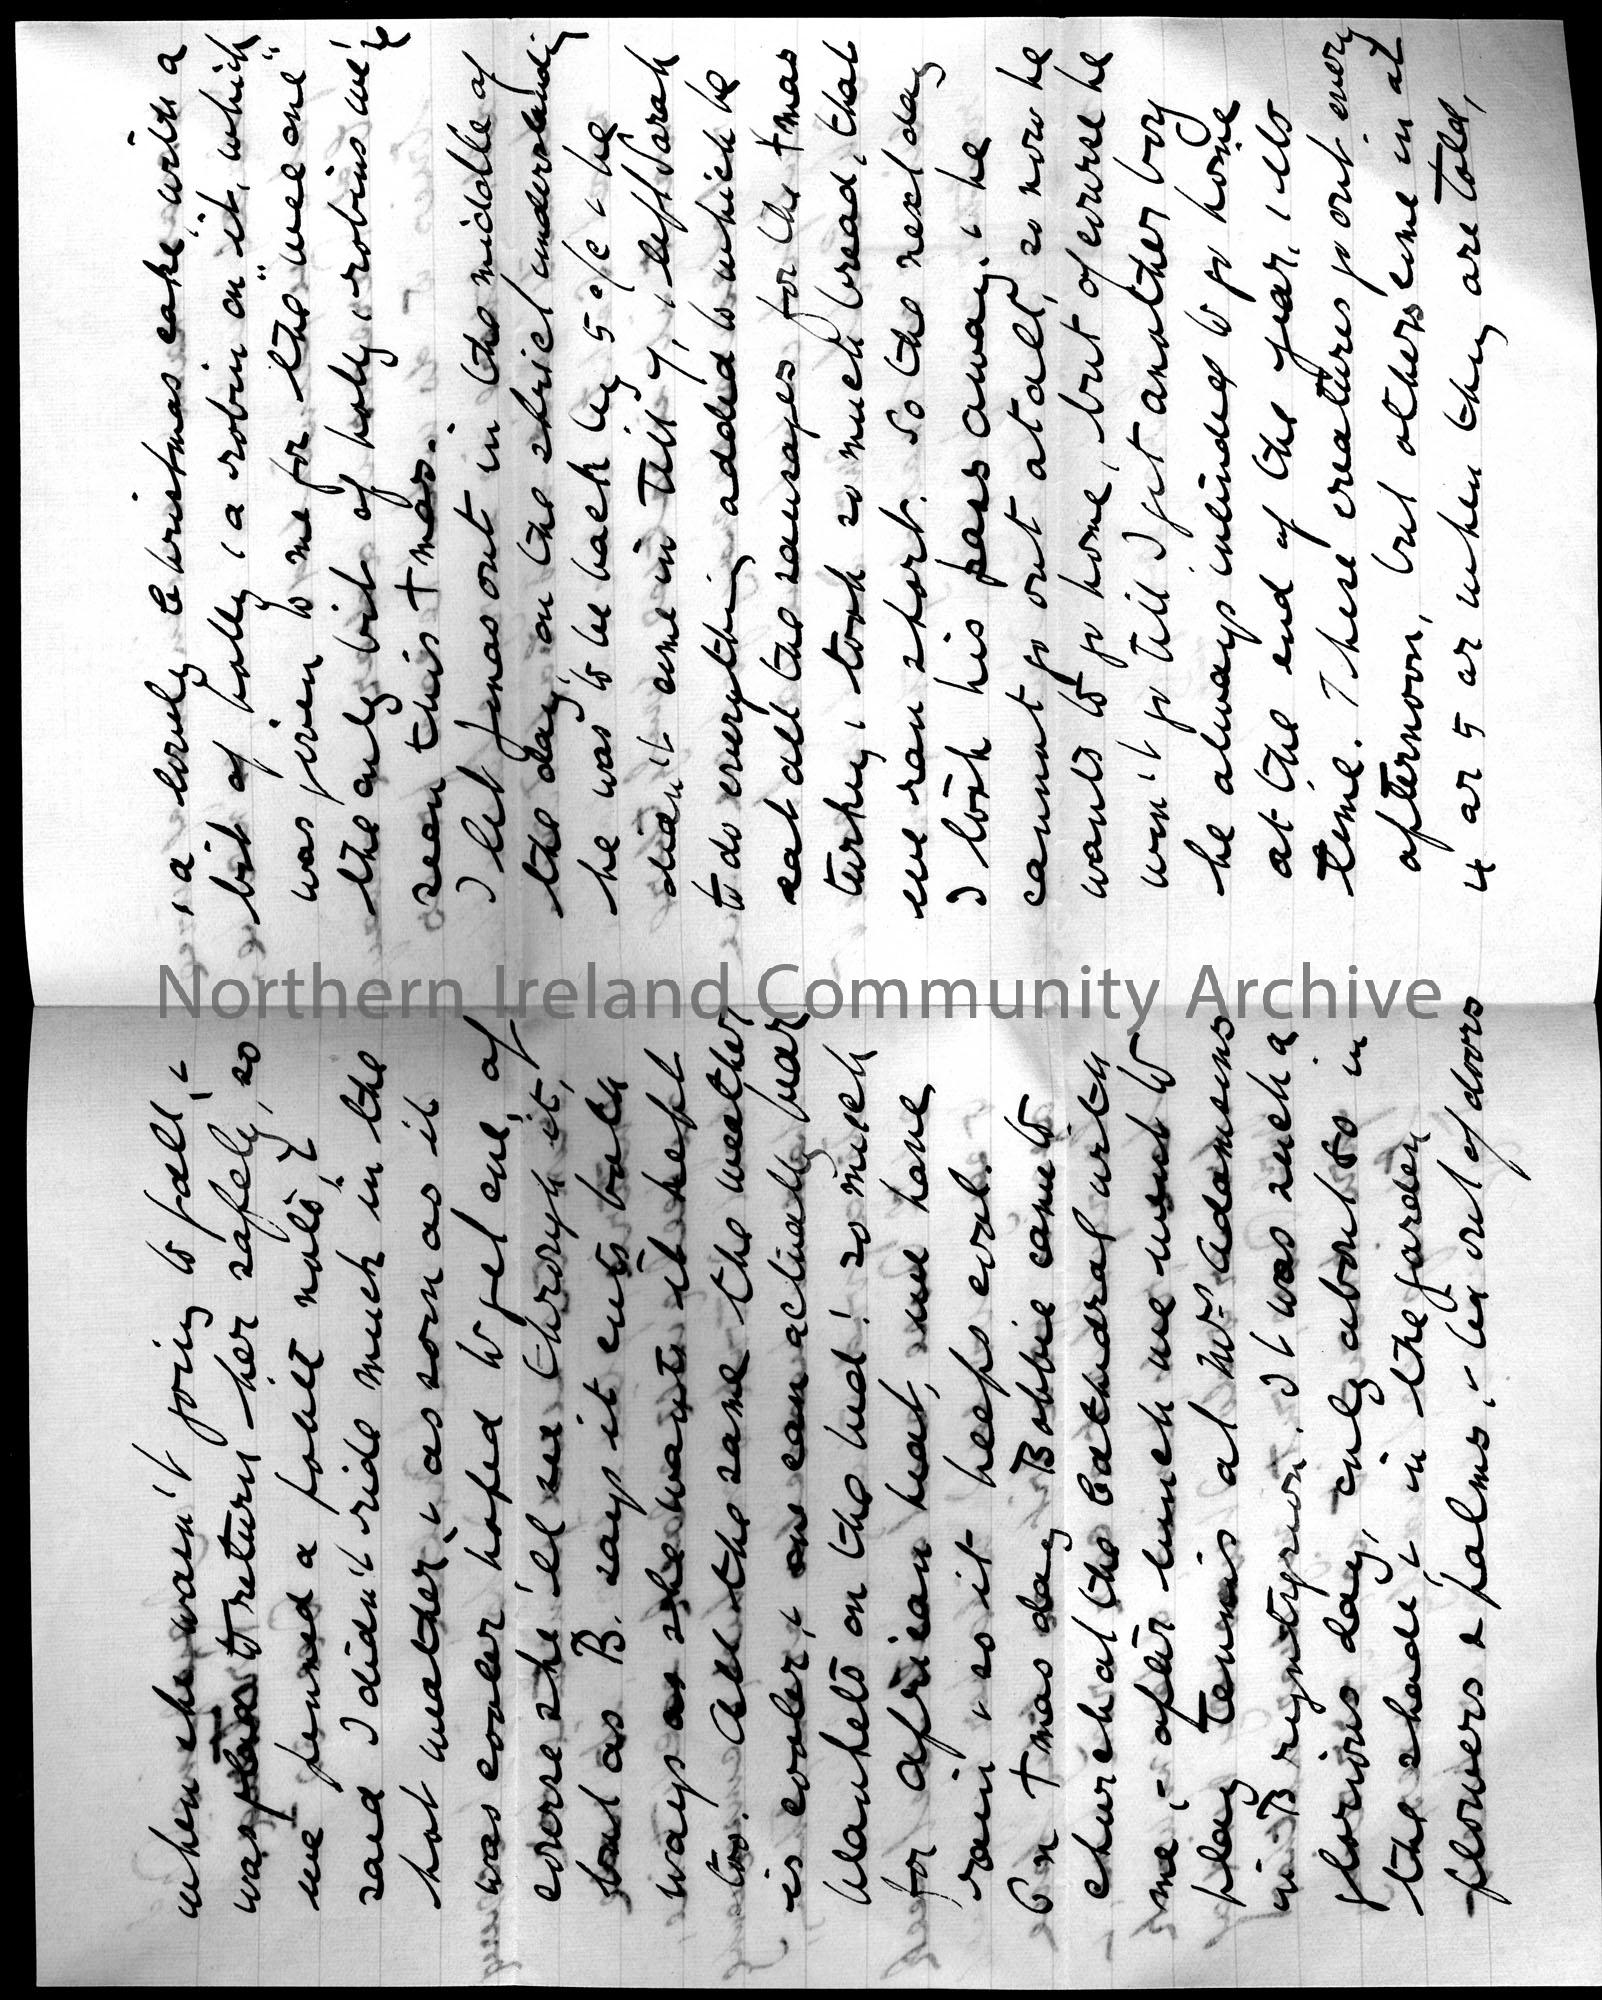 when she wasn't going to fall, &
was to return her safely, so
we penned a polite note, I
said I didn't ride much in the
hot weather, & as soon as it
was cooler hoped to get one, of
course she'll see through it,
but as B. says it cuts both
ways as she wants it kept
too. All the same the weather
is cooler, & one can actually bear
blankets on the bed! so much
for African heat, we have
rain & so it keeps cool.
On Xmas day Bobbie came to
church at the Cathedral with
me, & after lunch we went to
play tennis at Mrs Adamsons
in Bryntyrion. It was such a
glorious day, only about 80 in
the shade, & in the garden
flowers & palms, & tea out of doors
& a lovely Christmas cake with a
bit of holly & "a robin on it," which
was given to me for "the wee one"
the only bit of holly & robins we've
seen this Xmas.
I let Jonas out in the middle of
the day, on the strict understanding
he was to be back by 5 o/c & he
didn't come in till 7, & left Sarah
to do everything added to which he
eat all the sausages for the Xmas
turkey, & took so much bread, that
we ran short. So the next day
I took his pass away, & he
cannot go out at all, so now he
wants to go home, but of course he
won't go till I get another boy
he always intended to go home
at the end of the year, & its
time. These creatures go out every
afternoon, but others come in at
4 or 5 or when they are told,
Northern Ireland Community Archive